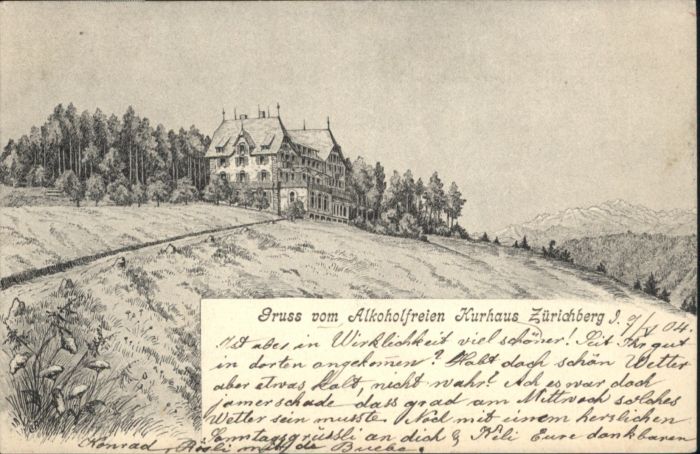 Gruss vom Alkoholfreien Kurhaus Zürichberg J. 9/V 04
Ist aber in Wirklichkeit viel schöner! Seit Ihr gut
in dorten angekommen? Habt doch schön Wetter
aber etwas kalt, nicht wahr! Ach es war doch
jamerschade, dass grad am Mittwoch solches
Wetter sein musste. Noch mit einem herzlichen
Sonntagsgrüssli an dich & Eure dankbaren
Konrad, Rösli de Buebe.